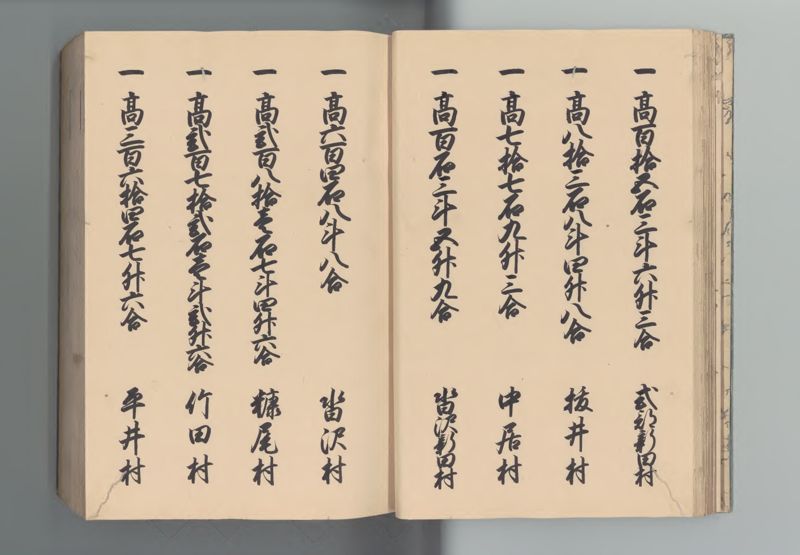 一 高百拾五石三斗六升三合 式部新田村
一 高八拾三石八斗四升八合 抜井村
一 高七拾七石九升三合 中居村
一 高百石三斗五升九合 沢新田村
一 高六百四石八斗八合 沢村
一 高弐百八拾壱石七斗四升六合 糠尾村
一 高弐百七拾弐石壱斗弐升六合 竹田村
一 高三百六拾四石七升六合 平井村